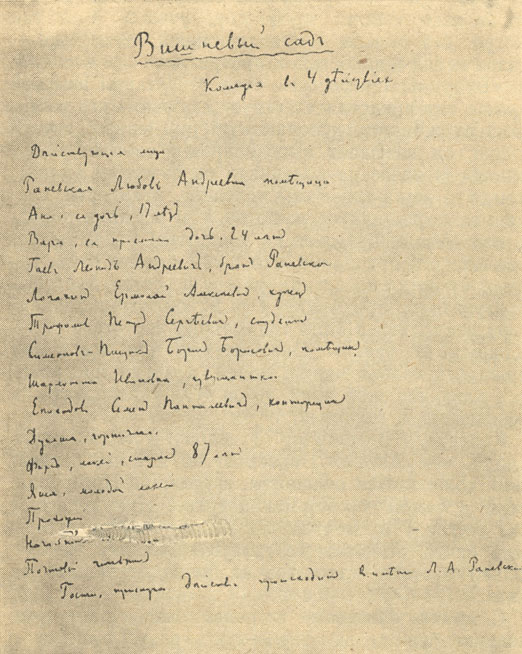 Вишневый садъ
Комедія въ 4 дѣйствіях
Действующія лица
Раневская Любовь Андреевна помѣщица
Аня, ея дочь, 17 лѣтъ
Варя, ея пріемная дочь, 24 лѣтъ
Гаевъ Леонидъ Андреевичъ, братъ Раневской
Лопахинъ Ермолай Алексеевичъ, купецъ
Трофимовъ Петръ Сергѣевичъ, студентъ
Симеоновъ-Пищикъ Борисъ Борисовичъ, помѣщикъ
Шарлотта Ивановна, гувернантка
Епиходовъ Семенъ Пантелеевичъ, конторщикъ
Дуняша, горничная.
Фирсъ, лакей, старикъ 87 лѣтъ
Яша, молодой лакей
Прохожій
Начальникъ
Почтовый чиновникъ
Гости, прислуга Действіе происходитъ в имѣніи Л. А. Раневской